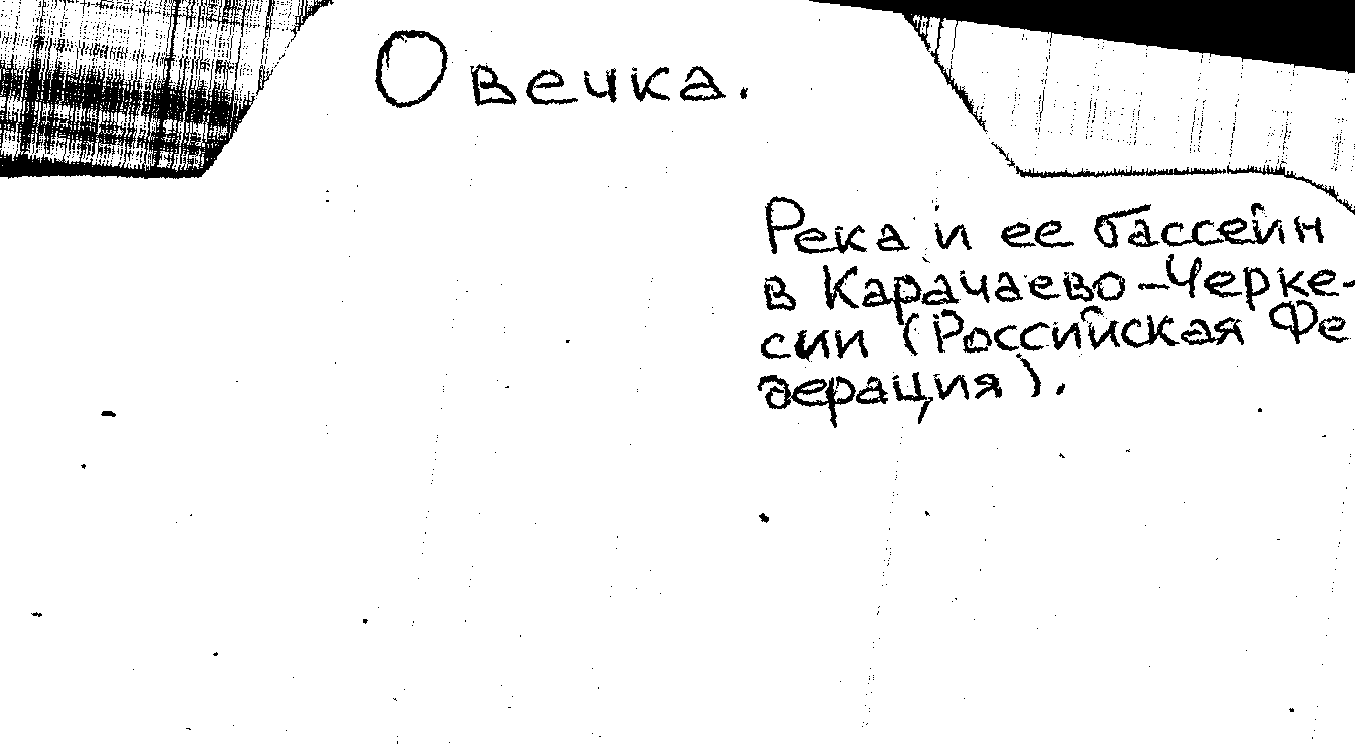 Овечка.
Река и ее бассейн
в Карачаево-Черке-
сии (Российская Фе
дерация).